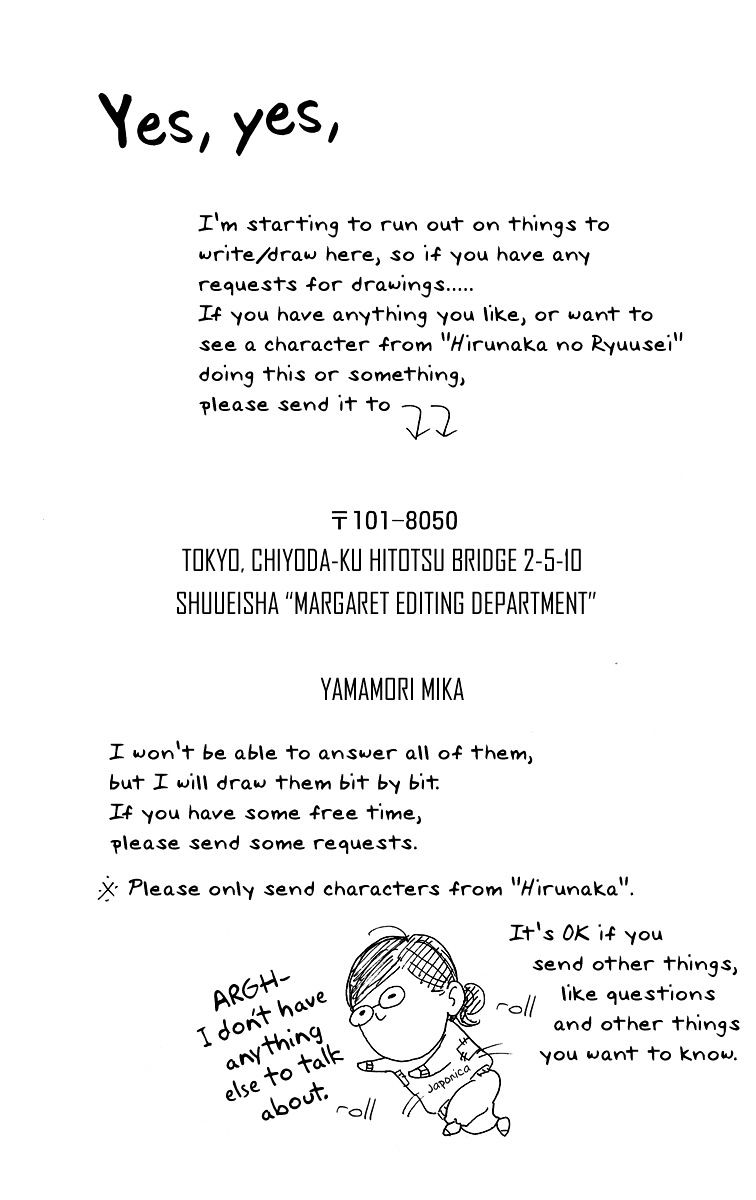 Yes, yes,
I'm starting to run out on things to
write/draw here, so if you have any
requests for drawings.....
If you have anything you like, or want to
see a character from "Hirunaka no Ryuusei"
doing this or something,
please send it to
〒101-8050
TOKYO, CHIYODA-KU HITOTSU BRIDGE 2-5-10
SHUUEISHA “MARGARET EDITING DEPARTMENT”
YAMAMORI MIKA
I won't be able to answer all of them,
but I will draw them bit by bit.
If you have some free time,
please send some requests.
※ Please only send characters from "Hirunaka".
It's OK if you
send other things,
like questions
and other things
you want to know.
ARGH-
I don't have
anything
else to talk
about.
roll
Japonica
roll